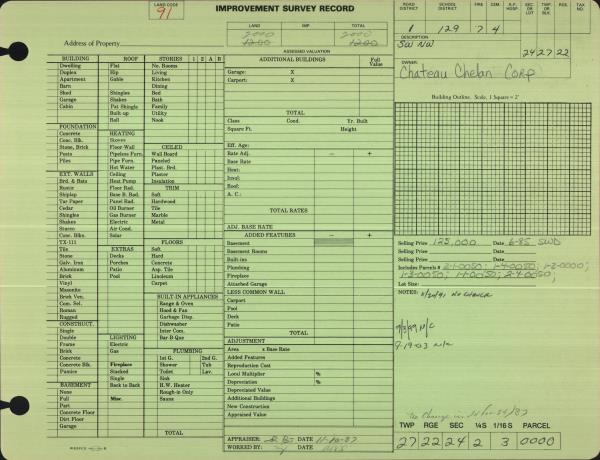 LAND CODE
91
IMPROVEMENT SURVEY RECORD
ROAD DISTRICT SCHOOL DISTRICT FIRE CEM. A.P. HOSP. SEC. OR LOT TWP. OR BLK. RGE.
1 129 7 4
LAND IMP TOTAL
2000 2000
1200 1200
Address of Property
ASSESSED VALUATION
DESCRIPTION
SW NW
24 27 22
OWNER:
Chateau Chelan Corp
BUILDING ROOF STORIES 1 2 A B
Dwelling Flat No. Rooms
Duplex Hip Living
Apartment Gable Kitchen
Barn Dining
Shed Shingles Bed
Garage Shakes Bath
Cabin Pat Shingle Family
Built-up Utility
Roll Nook
FOUNDATION
Concrete HEATING
Conc. Blk. Stoves CEILED
Stone, Brick Floor-Wall Wall Board
Posts Pipeless Furn. Paneled
Piles Pipe Furn. Plast. Brd.
Hot Water Insulation
EXT. WALLS Ceiling Plaster
Brd. & Bats Heat Pump TRIM
Rustic Floor Rad.
Shiplap Base B. Rad. Soft
Tar Paper Panel Rad. Hardwood
Cedar Oil Burner Tile
Shingles Gas Burner Marble
Shakes Electric Metal
Stucco Air Cond.
Conc. Blks. Solar FLOORS
TX-111
Tile EXTRAS Soft
Stone Decks Hard
Galv. Iron Porches Concrete
Aluminum Patio Asp. Tile
Brick Pool Linoleum
Vinyl Carpet
Masonite
Brick Ven. BUILT-IN APPLIANCES
Com. Sel. Range & Oven
Roman Hood & Fan
Rugged Garbage Disp.
CONSTRUCT. Dishwasher
Single LIGHTING Inter Com.
Double Electric Bar-B-Que
Frame Gas
Brick PLUMBING
Concrete Fireplace 1st G. 2nd G.
Concrete Blk. Single Shower Tub
Pumice Stacked Toilet Lav.
BASEMENT Back to Back Sink
None H.W. Heater
Full Misc. Rough-in Only
Part Sauna
Concrete Floor
Dirt Floor
Garage TOTAL
ADDITIONAL BUILDINGS Full Value
Garage: X
Carport: X
TOTAL
Class Cond. Yr. Built
Square Ft. Height
Eff. Age:
Rate Adj. – +
Base Rate
Heat:
Insul:
Roof:
A. C.:
TOTAL RATES
ADJ. BASE RATE
ADDED FEATURES – +
Basement
Basement Rooms
Built-ins
Plumbing
Fireplace
Attached Garage
LESS COMMON WALL
Carport
Pool
Deck
Patio
TOTAL
ADJUSTMENT
Area x Base Rate
Added Features
Reproduction Cost
Local Multiplier %
Depreciation %
Depreciated Value
Additional Buildings
New Construction
Appraised Value
APPRAISER: DATE 11-10-87
WORKED BY: DATE
Building Outline. Scale, 1 Square = 2'
Selling Price 125,000 Date 6-85 SWD
Selling Price Date
Includes Parcels # 2-1-0050; 1-4-0050; 1-2-0000;
1-3-0050; 1-1-0050; 2-4-0050;
Lot Size:
NOTES: 8/20/91 No Change
9/3/99 N/C
9-19-03 N/C
TWP RGE SEC ¼S 1/16 S PARCEL
27 22 24 2 3 0000